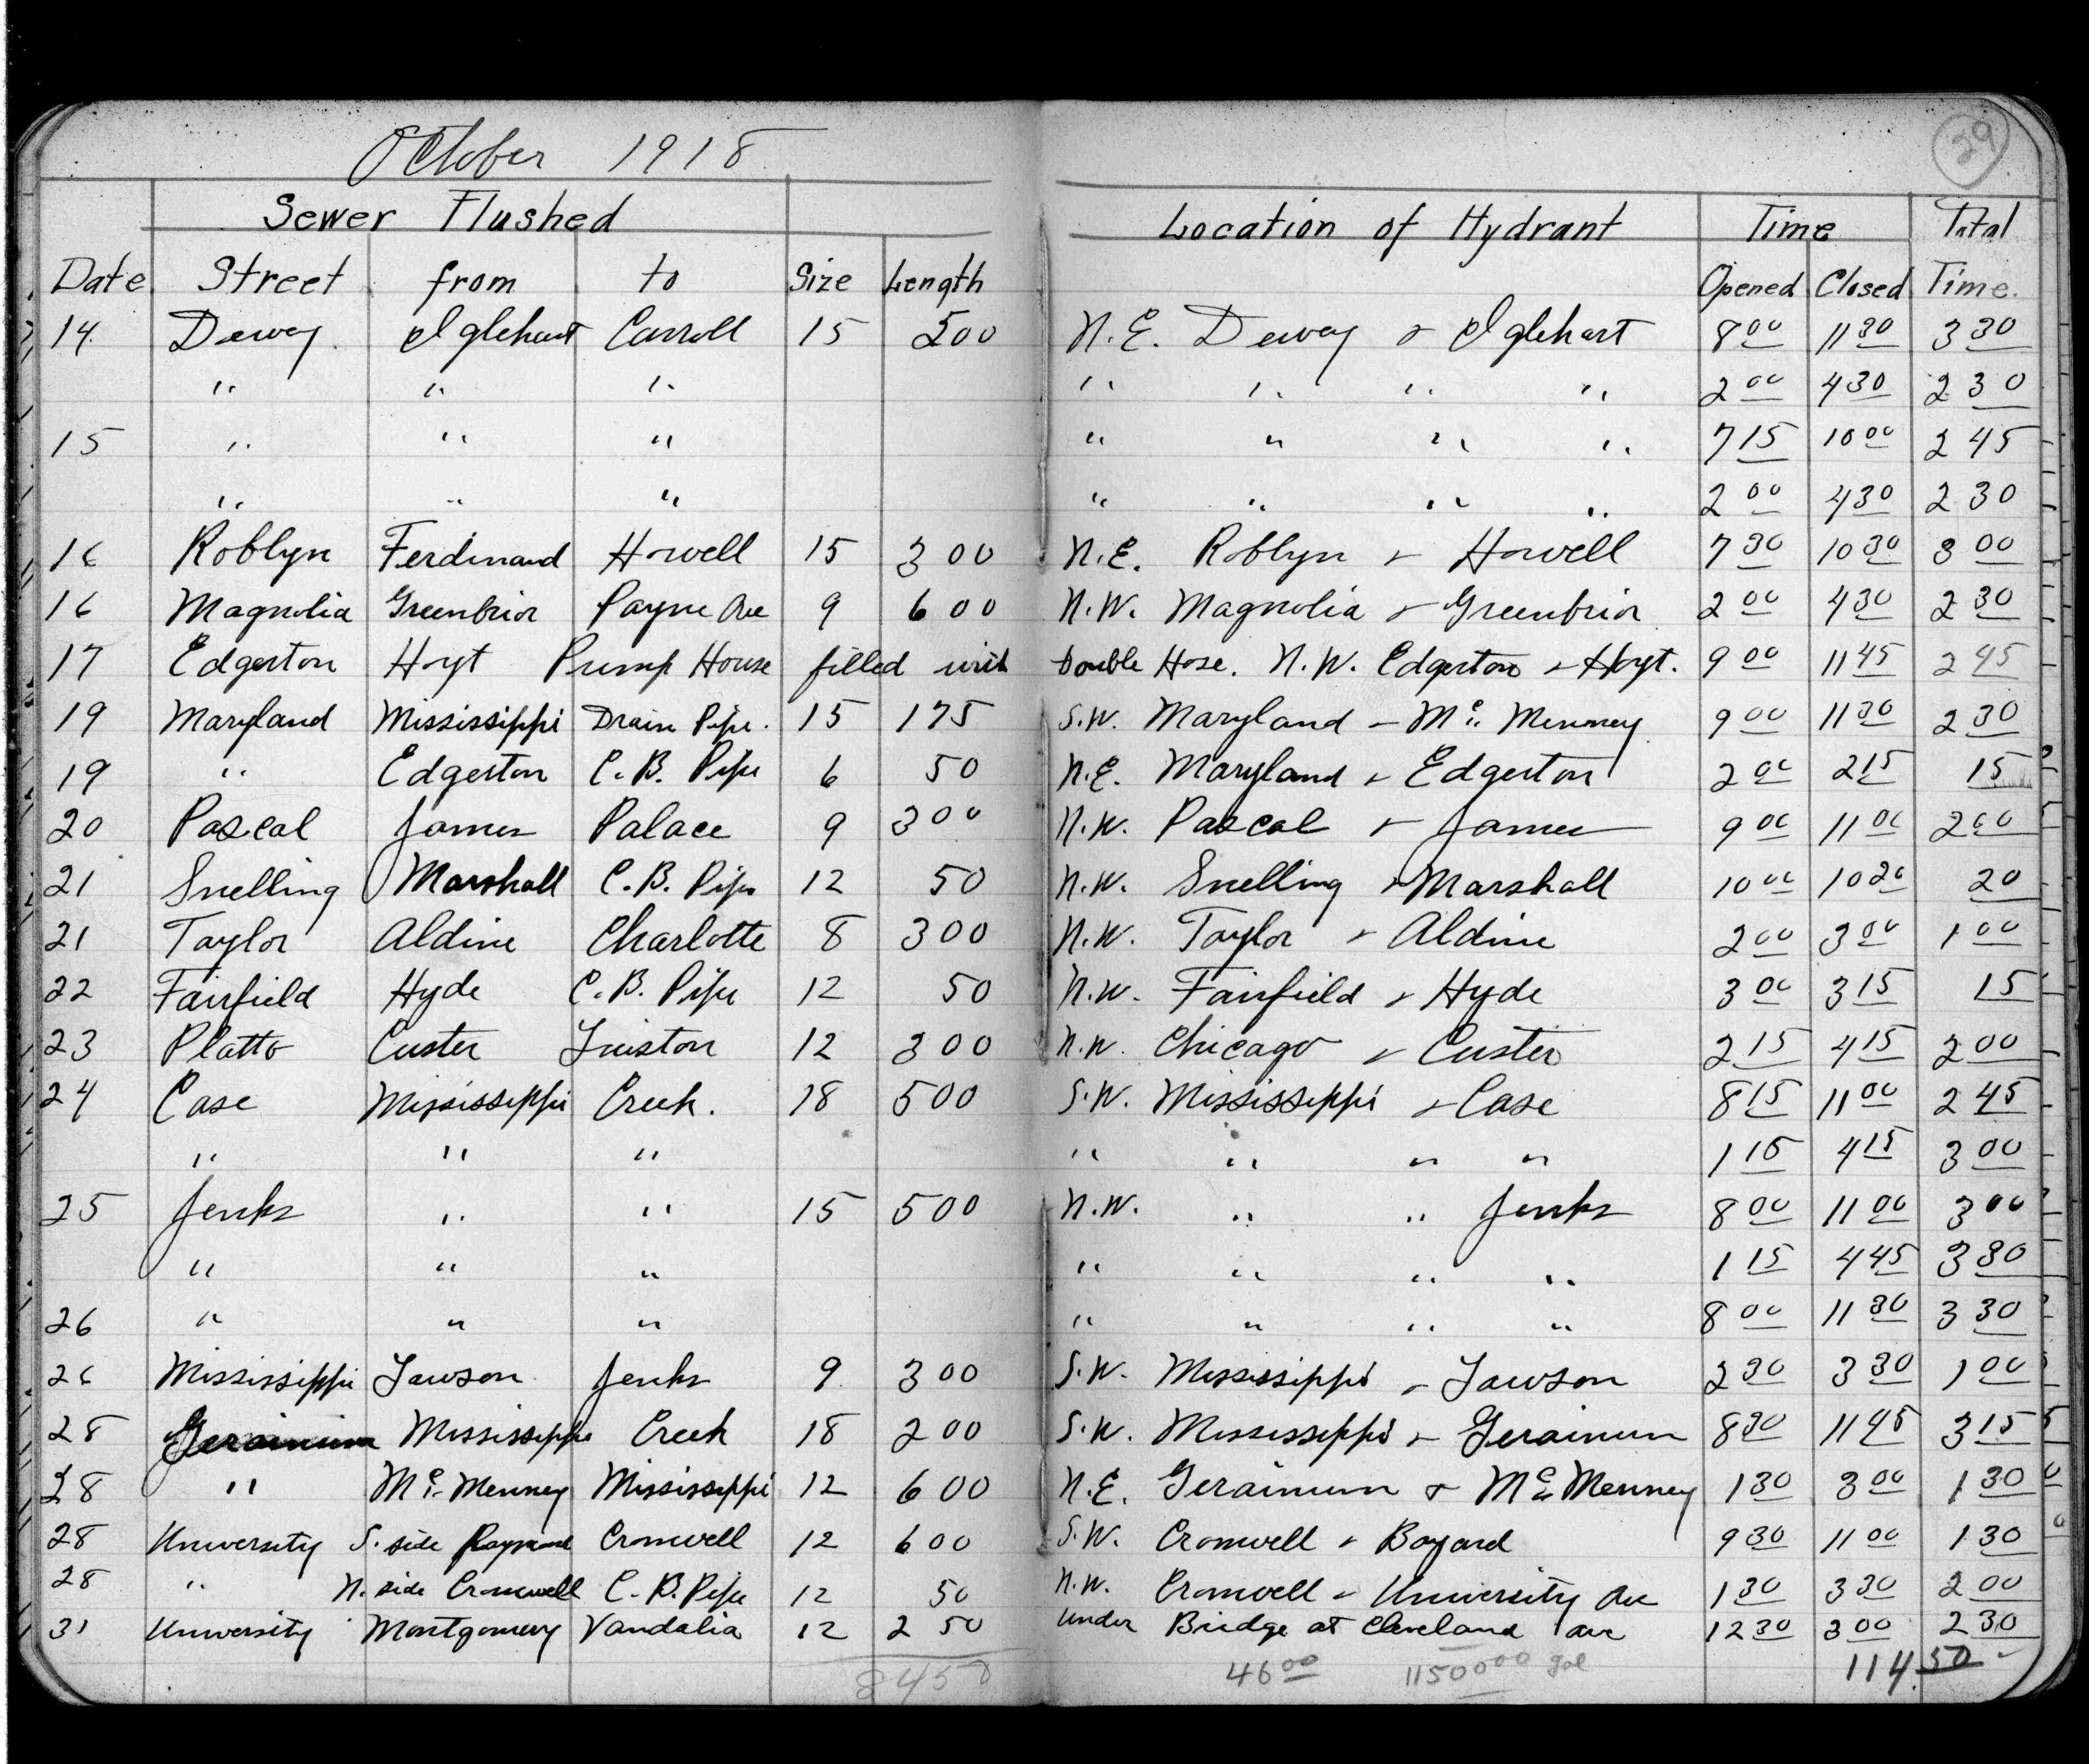 October 1918
39
Sewer Flushed Location of Hydrant Time Total
Date Street from to Size Length Opened Closed Time.
14 Dewey Iglehart Carroll 15 500 N.E. Dewey & Iglehart 8 00 11 30 3 30
" " " " " " " 2 00 4 30 2 30
15 " " " " " " " 7 15 10 00 2 45
" " " " " " " 2 00 4 30 2 30
16 Roblyn Ferdinand Howell 15 300 N.E. Roblyn & Howell 7 30 10 30 3 00
16 Magnolia Greenbrior Payne Ave 9 600 N.W. Magnolia & Greenbrior 2 00 4 30 2 30
17 Edgerton Hoyt Pump House filled with Double Hose. N.W. Edgerton & Hoyt. 9 00 11 45 2 45
19 Maryland Mississippi Drain Pipe. 15 175 S.W. Maryland - Mc Menney 9 00 11 30 2 30
19 " Edgerton C.B. Pipe 6 50 N.E. Maryland & Edgerton 2 00 2 15 15
20 Pascal James Palace 9 300 N.W. Pascal & James 9 00 11 00 2 00
21 Snelling Marshall C.B. Pipe 12 50 N.W. Snelling & Marshall 10 00 10 20 20
21 Taylor Aldine Charlotte 8 300 N.W. Taylor & Aldine 2 00 3 00 1 00
22 Fairfield Hyde C.B. Pipe 12 50 N.W. Fairfield & Hyde 3 00 3 15 15
23 Platto Custer Winston 12 300 N.W. Chicago & Custer 2 15 4 15 2 00
24 Case Mississippi Creek. 18 500 S.W. Mississippi & Case 8 15 11 00 2 45
" " " " " " " 1 15 4 15 3 00
25 Jenks " " 15 500 N.W. " " Jenks 8 00 11 00 3 00
" " " " " " " 1 15 4 45 3 30
26 " " " " " " " 8 00 11 30 3 30
26 Mississippi Lawson Jenks 9 300 S.W. Mississippi & Lawson 2 30 3 30 1 00
28 Gerainium Mississippi Creek 18 200 S.W. Mississippi & Gerainium 8 30 11 45 3 15
28 " Mc Menney Mississippi 12 600 N.E. Gerainium & Mc Menney 1 30 3 00 1 30
28 University S. side Cromwell 12 600 S.W. Cromwell & Bayard 9 30 11 00 1 30
28 " N. side Cromwell C.B. Pipe 12 50 N.W. Cromwell & University Ave 1 30 3 30 2 00
31 University Montgomery Vandalia 12 250 under Bridge at Cleveland Ave 12 30 3 00 2 30
8450 46 00 1150000 gal 114.50